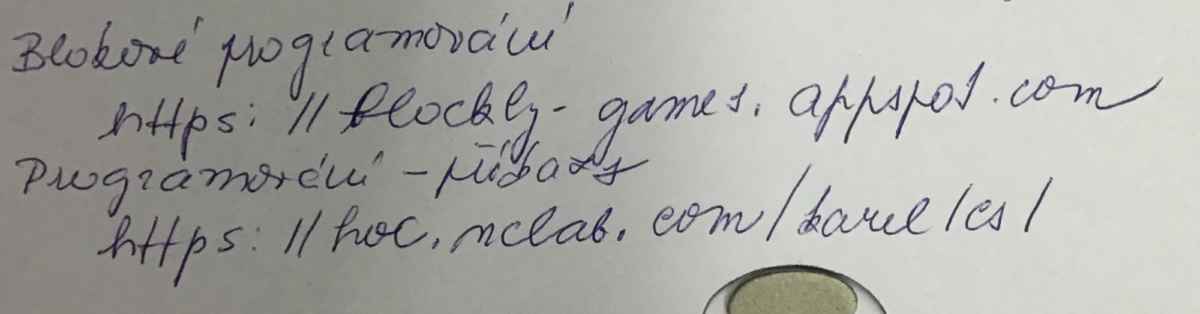 Blokové programování
https://blockly-games.appspot.com
Programování - příkazy
https://hoc.nclab.com/karel/cs/